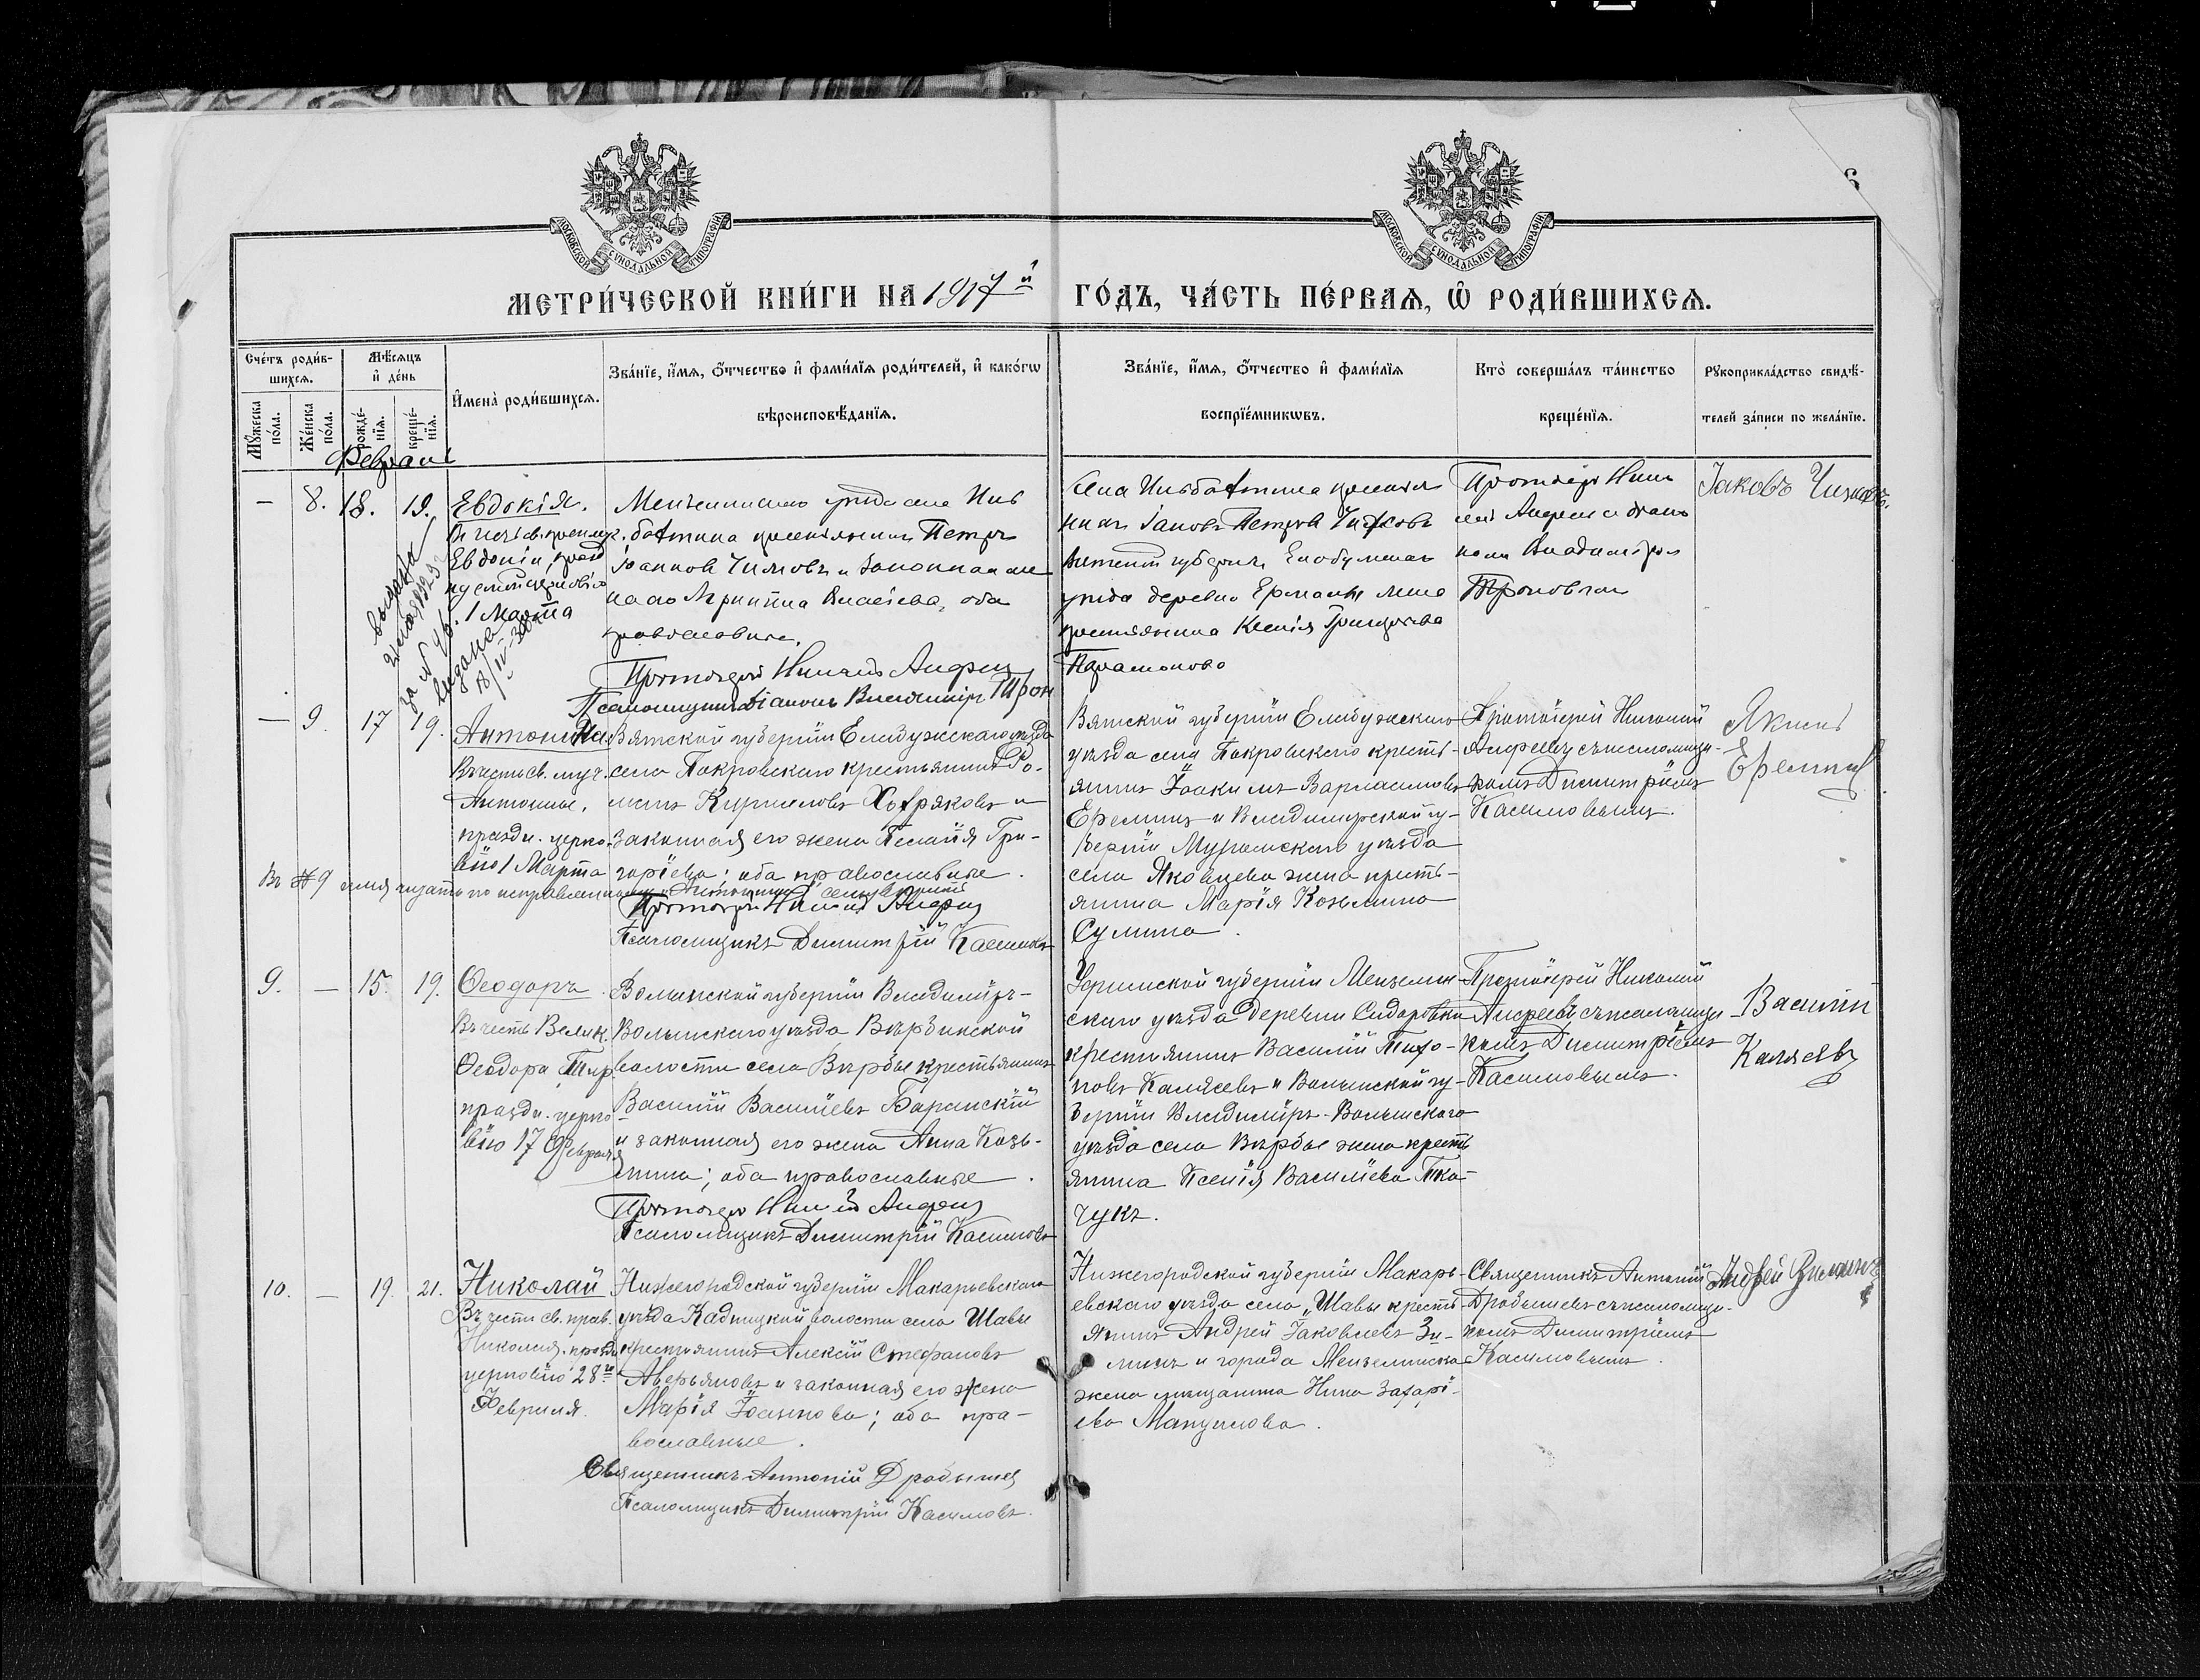 МОСКОВСКОЙ СѴНОДАЛЬНОЙ ТИПОГРАФІИ
МОСКОВСКОЙ СѴНОДАЛЬНОЙ ТИПОГРАФІИ
МЕТРИ́ЧЕСКОЙ КНИ́ГИ НА 1917й ГО́ДЪ, ЧА́СТЬ ПЕ́РВАѦ, Ѡ РОДИ́ВШИХСѦ.
Сче́тъ роди́в-
шихсѧ.
Мꙋ́жеска по́ла.
Же́нска по́ла.
Мѣ́сѧцъ
и де́нь
рожде́-
нїѧ.
креще́-
нїѧ.
И҆мена̀ роди́вшихсѧ.
Зва́нїе, и҆́мѧ, ѻ҆́тчество и҆ фами́лїѧ роди́телей, и҆ како́гѡ
вѣроисповѣ́данїѧ.
Зва́нїе, и҆́мѧ, ѻ҆́тчество и҆ фами́лїѧ
воспрїе́мникѡвъ.
Кто̀ соверша́лъ та́инство
креще́нїѧ.
Рꙋкоприкла́дство свидѣ́-
телей за́писи по жела́нїю.
Февраль
— 8. 18. 19. Евдокія.
Евдокіи, празд
1 Марта
выдана
за № 46.
выдана
Мензелинскаго уѣзда села
крестьянинъ Петръ
Іаковъ Чижовъ и законная
оба
православные.
Протоіерей Николай Андреевъ
Іаковъ Петровъ Чижовъ
губерніи Елабужскаго
уѣзда деревни
крестьянина Ксенія Григорьева
Парамонова
Протоіерей Нико
лай Андреевъ
Владиміромъ
Троновымъ
Іаковъ Чижовъ.
— 9. 17 19. Антонина
Въ честь св. муч.
Антонины,
праздн. церко-
вію 1 Марта
Вятской губерніи Елабужскаго уѣзда
села Покровскаго крестьянинъ Ро-
манъ Кирилловъ Хохряковъ и
законная его жена Пелагія Гри-
горіева; оба православные.
Протоіерей Николай Андреевъ
Псаломщикъ Димитрій Касимовъ
Вятской губерніи Елабужскаго
уѣзда села Покровскаго кресть-
янинъ Іоакимъ Варлаамовъ
Ереминъ и Владимірской гу-
берніи Муромскаго уѣзда
села Яковцева жена кресть-
янина Марія Козьмина
Сумина.
Протоіерей Николай
Андреевъ съ псаломщи-
комъ Димитріемъ
Касимовымъ.
Якимъ
Ереминъ
Въ № 9 имя читать по исправленному „Антонина"
9. — 15. 19. Ѳеодоръ
Въ честь Велик.
Ѳеодора Тир.
праздн. церко-
вію 17 Февраля
Волынской губерніи Владиміръ-
Волынскаго уѣзда Вербинской
волости села Вербы крестьянинъ
Василій Васильевъ Баранскій
и законная его жена Анна Козь-
мина; оба православные.
Протоіерей Николай Андреевъ
Псаломщикъ Димитрій Касимовъ
Уфимской губерніи Мензелин-
скаго уѣзда деревни Сидоровки
крестьянинъ Василій Тихо-
новъ Каляевъ и Волынской гу-
берніи Владиміръ-Волынскаго
уѣзда села Вербы жена кресть
янина Ксенія Васильева Тка-
чукъ.
Протоіерей Николай
Андреевъ съ псаломщи
комъ Димитріемъ
Касимовымъ.
Василій
Каляевъ
10. — 19. 21. Николай
Въ честь св. прав.
Николая, празд.
церковію 28го
Февраля.
Нижегородской губерніи Макарьевскаго
уѣзда Кадницкой волости села Шавы
крестьянинъ Алексій Стефановъ
Аверьяновъ и законная его жена
Марія Іоаннова; оба пра-
вославные.
Священникъ Антоній Дробышев
Псаломщикъ Димитрій Касимовъ.
Нижегородской губерніи Макарь-
евскаго уѣзда села Шавы кресть-
янинъ Андрей Іаковлевъ Зи-
линъ и города Мензелинска
жена мѣщанина Нина Захарі-
ева Манцурова.
Священникъ Антоній
Дробышевъ съ псаломщи-
комъ Димитріемъ
Касимовымъ.
Андрей Зилинъ